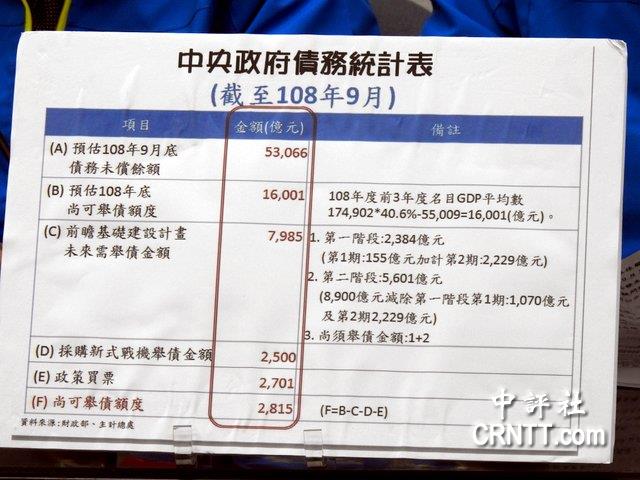 中央政府債務統計表
(截至108年9月)
項目 金額(億元) 備註
(A) 預估108年9月底
債務未償餘額 53,066
(B) 預估108年底
尚可舉債額度 16,001 108年度前3年度名目GDP平均數
174,902*40.6%-55,009=16,001(億元)。
(C) 前瞻基礎建設計畫
未來需舉債金額 7,985 1. 第一階段:2,384億元
(第1期:155億元加計第2期:2,229億元)
2. 第二階段:5,601億元
(8,900億元減除第一階段第1期:1,070億元
及第2期2,229億元)
3. 尚須舉債金額:1+2
(D) 採購新式戰機舉債金額 2,500
(E) 政策買票 2,701
(F) 尚可舉債額度 2,815 (F=B-C-D-E)
資料來源:財政部、主計總處
中評社
CRNTT.com